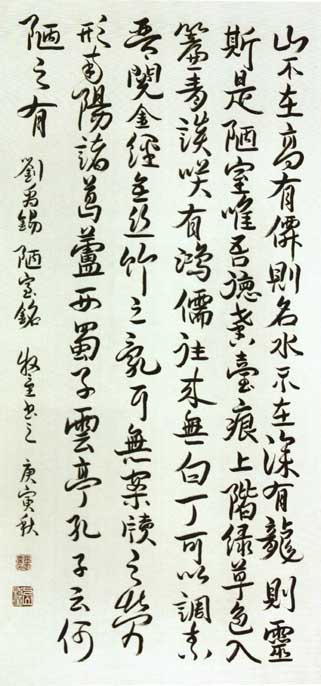 山不在高有僊則名水不在深有龍則靈
斯是陋室唯吾德馨臺痕上階緑草色入
簾青談咲有鴻儒往来無白丁可以調素
琴閲金經無丝竹之亂耳無案牘之勞
形南陽諸葛蘆西蜀子雲亭孔子云何
陋之有 劉禹錫 陋室銘 书之 庚寅秋